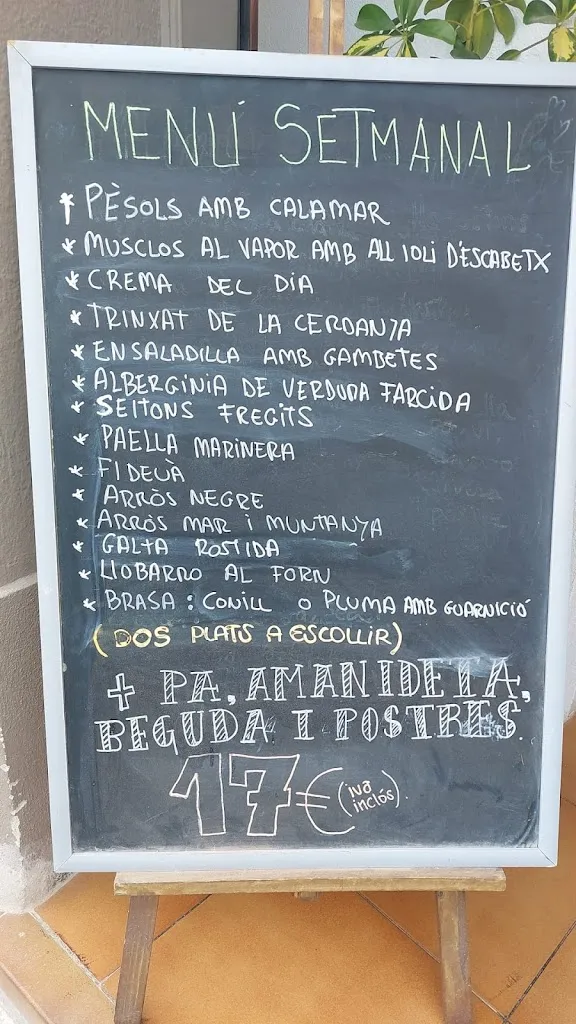 MENÚ SETMANAL
* PÈSOLS AMB CALAMAR
* MUSCLOS AL VAPOR AMB ALL IOLI D'ESCABETX
* CREMA DEL DIA
* TRINXAT DE LA CERDANYA
* ENSALADILLA AMB GAMBETES
* ALBERGINIA DE VERDURA FARCIDA
* SEITONS FREGITS
* PAELLA MARINERA
* FIDEUA
* ARRÒS NEGRE
* ARRÒS MAR I MUNTANYA
* GALTA ROSTIDA
* LLOBARRO AL FORN
* BRASA: CONILL O PLUMA AMB GUARNICIÓ
(DOS PLATS A ESCOLLIR)
+ PA, AMANIDETA,
BEGUDA I POSTRES.
17€ (iva inclós).